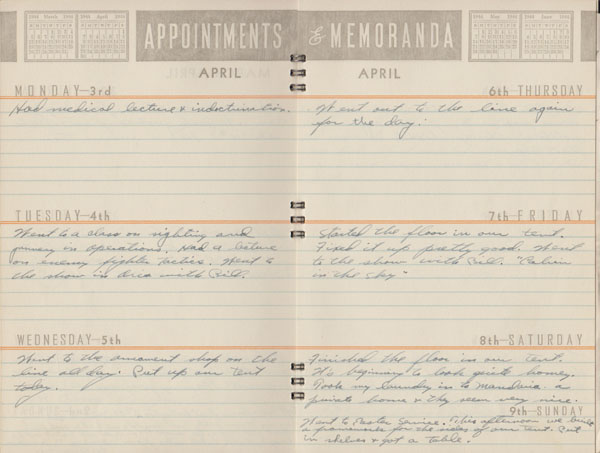 APPOINTMENTS & MEMORANDA
APRIL
MONDAY—3rd
Had medical lecture & indoctrination.
TUESDAY—4th
Went to a class on sighting and
in operations. Had a lecture
on enemy fighter tactics. Went to
the show in with Bill.
WEDNESDAY—5th
Went to the armament shop on the
line all day. Put up our tent
today.
APRIL
6th—THURSDAY
Went out to the line again
for the day.
7th—FRIDAY
Started the floor in our tent.
Fixed it up pretty good. Went
to the show with Bill. "Cabin
in the Sky"
8th—SATURDAY
Finished the floor in our tent.
It's beginning to look quite homey.
Took my laundry in to Manduria a
private home & they seem very nice.
9th—SUNDAY
Went to Easter Service. This afternoon we built
a framework for the sides of our tent. Put
in shelves & got a table.